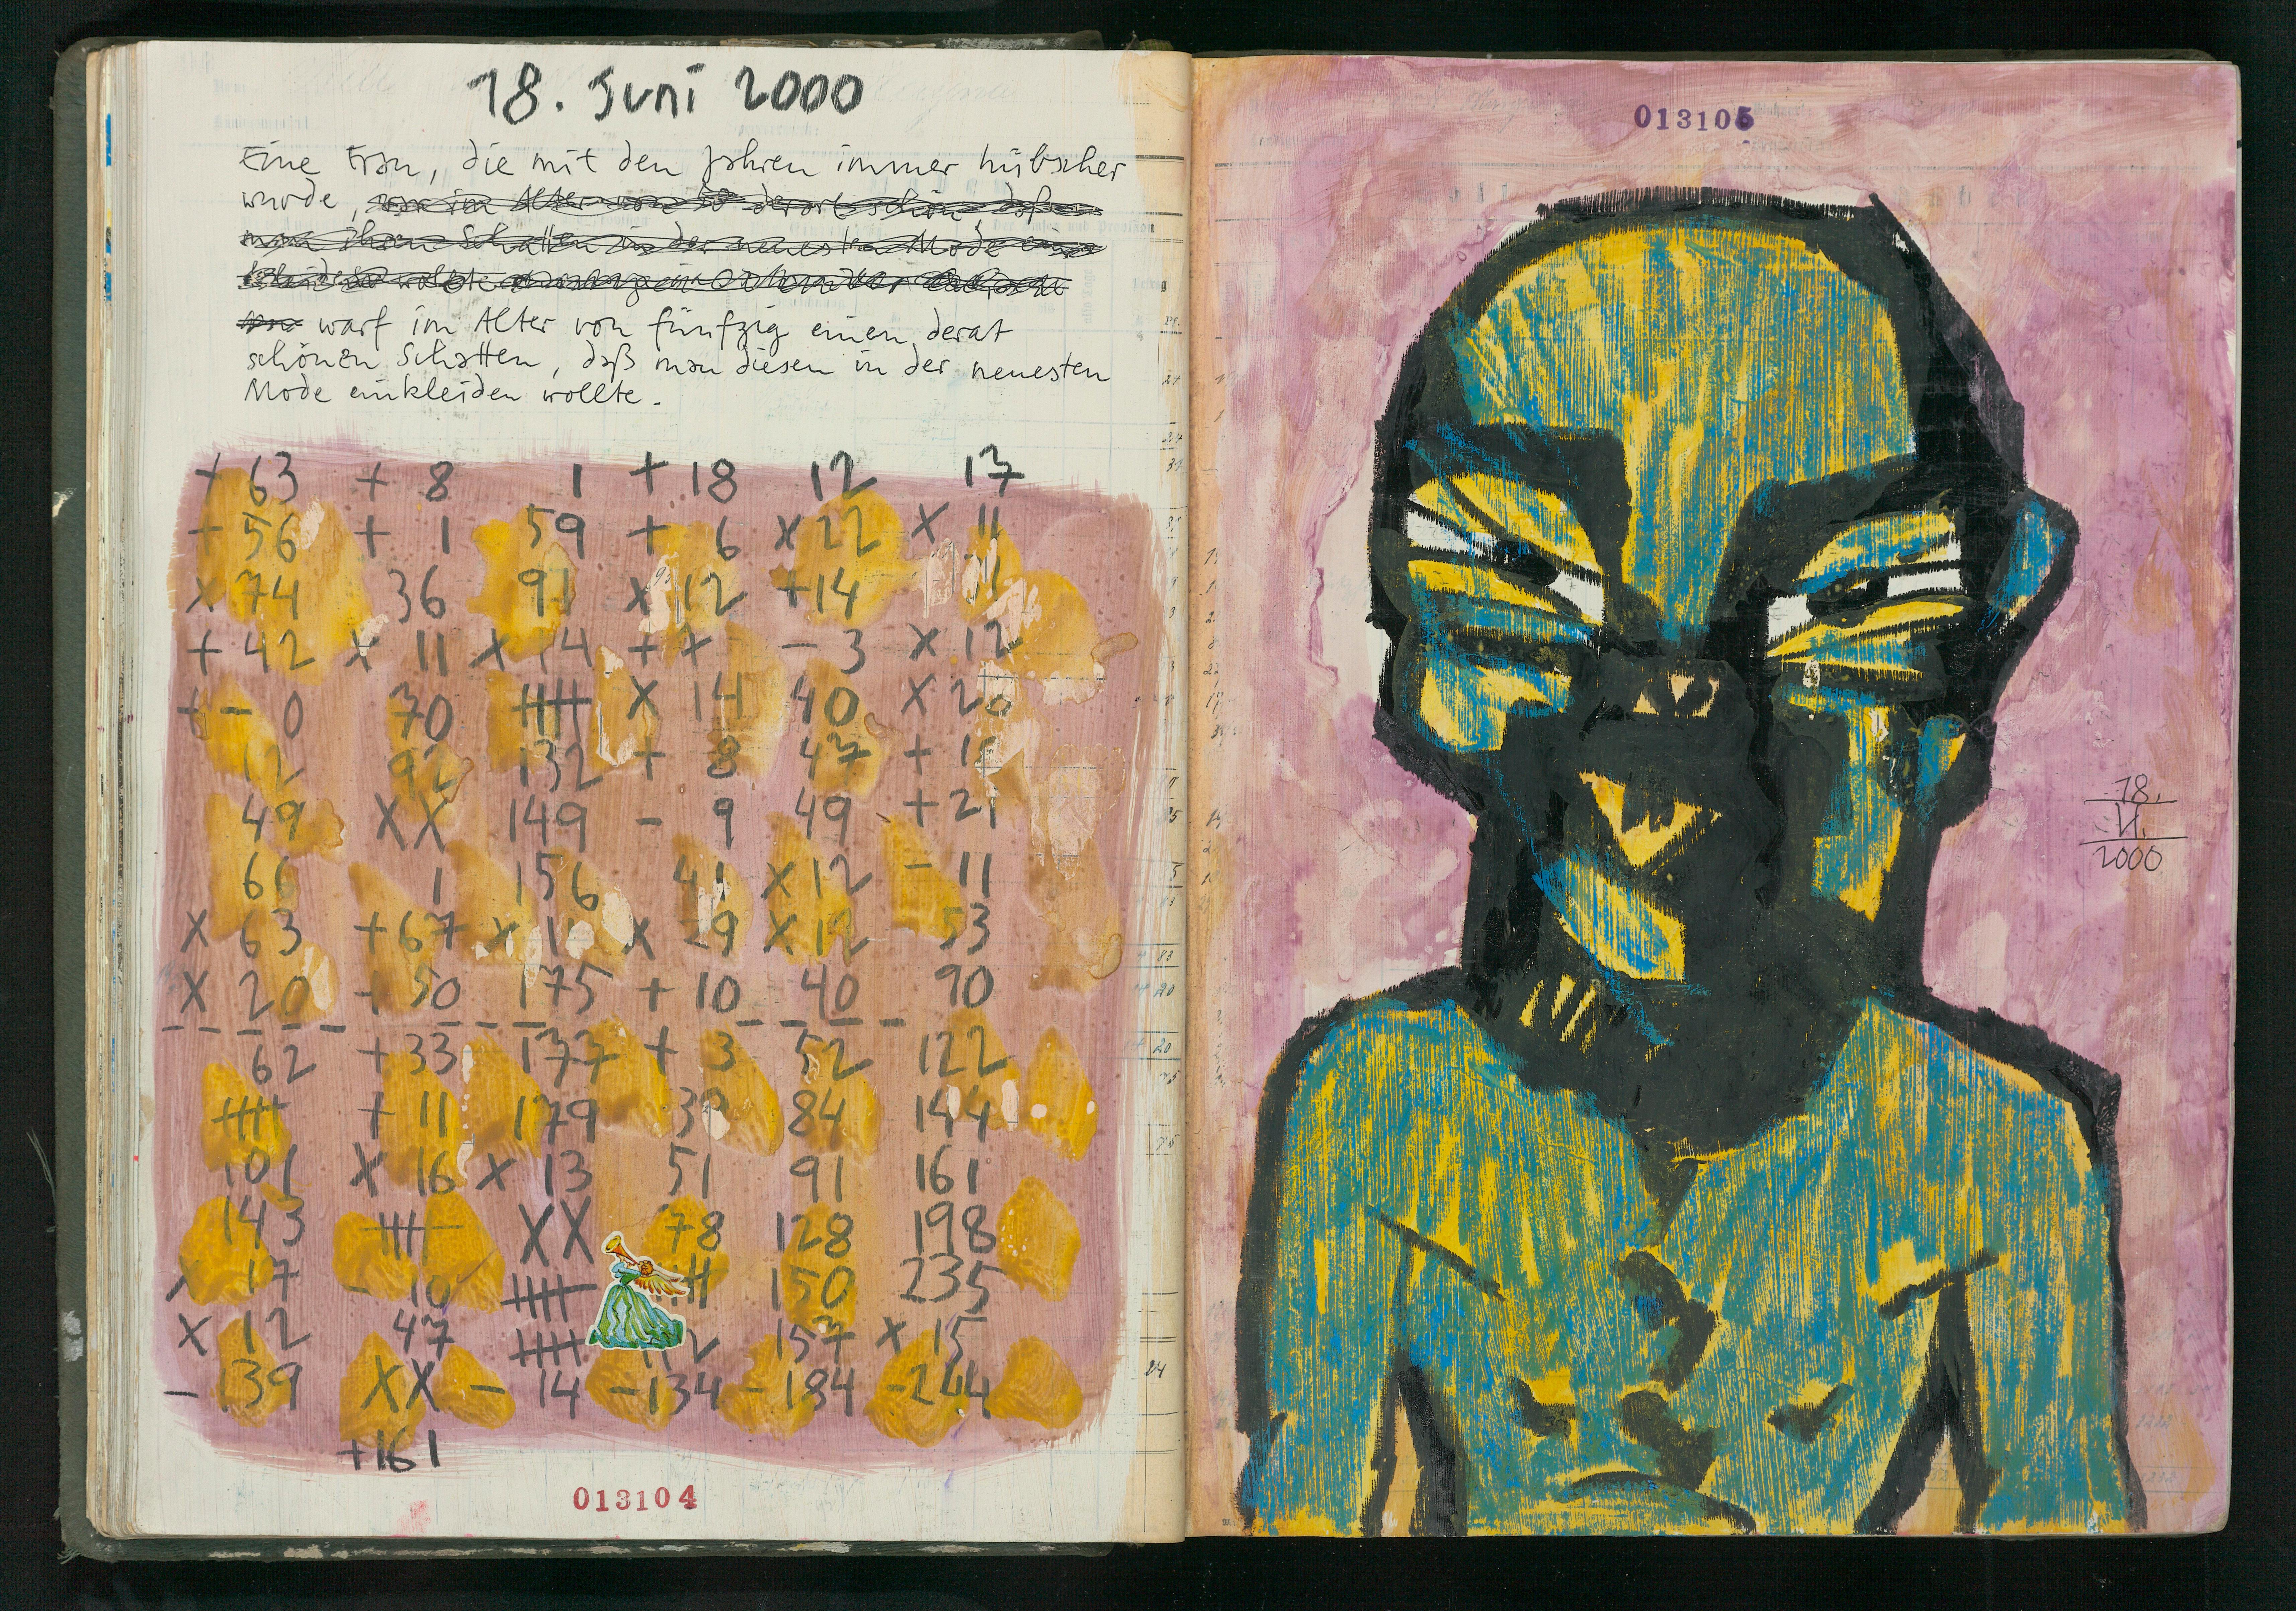 18. Juni 2000
Eine Frau, die mit den Jahren immer hübscher
wurde,
warf im Alter von fünfzig einen derat
schönen Schatten, daß man diesen in der neuesten
Mode einkleiden wollte.
+ 63 + 8 1 + 18 12 17
+ 56 + 1 59 + 6 x 22 x 11
x 74 36 91 x 12 +14
+ 42 x 11 x 14 - 3 x 12
+ - 0 70 x 14 40 x 20
12 92 132 + 8 47
49 XX 149 - 9 49 + 21
66 1 156 41 x 12 - 11
x 63 + 67 x 11 x 29 x 12 53
x 20 + 50 175 + 10 40 90
62 + 33 177 + 3 52 122
+ 11 179 84 144
101 x 16 x 13 51 91 161
143 XX 78 128 198
17 - 10 150 235
x 12 47 157 x 15
- 139 XX - 14 - 134 - 184 - 244
+ 161
013104
013105
18.
VI.
2000